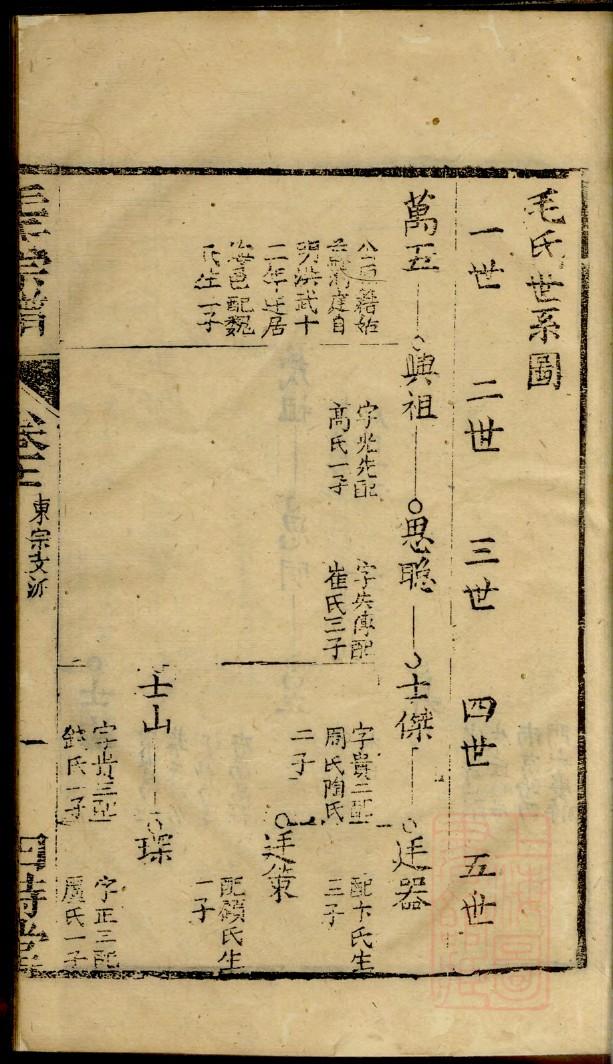 毛氏世系圖
一世 二世 三世 四世 五世
萬五 興祖 思聰 士傑 廷器
公原籍姑
蘇洞庭自
明洪武十
二年迁居
海邑配魏
氏生一子
字光先配
高氏一子
字失傳配
崔氏三子
字貴二配
周氏陶氏
二子
配卞氏生
三子
廷策
配顧氏生
一子
士山 琛
字贵三配
錢氏一子
字正三配
厲氏一子
毛氏宗譜
卷十二
東宗文派
一